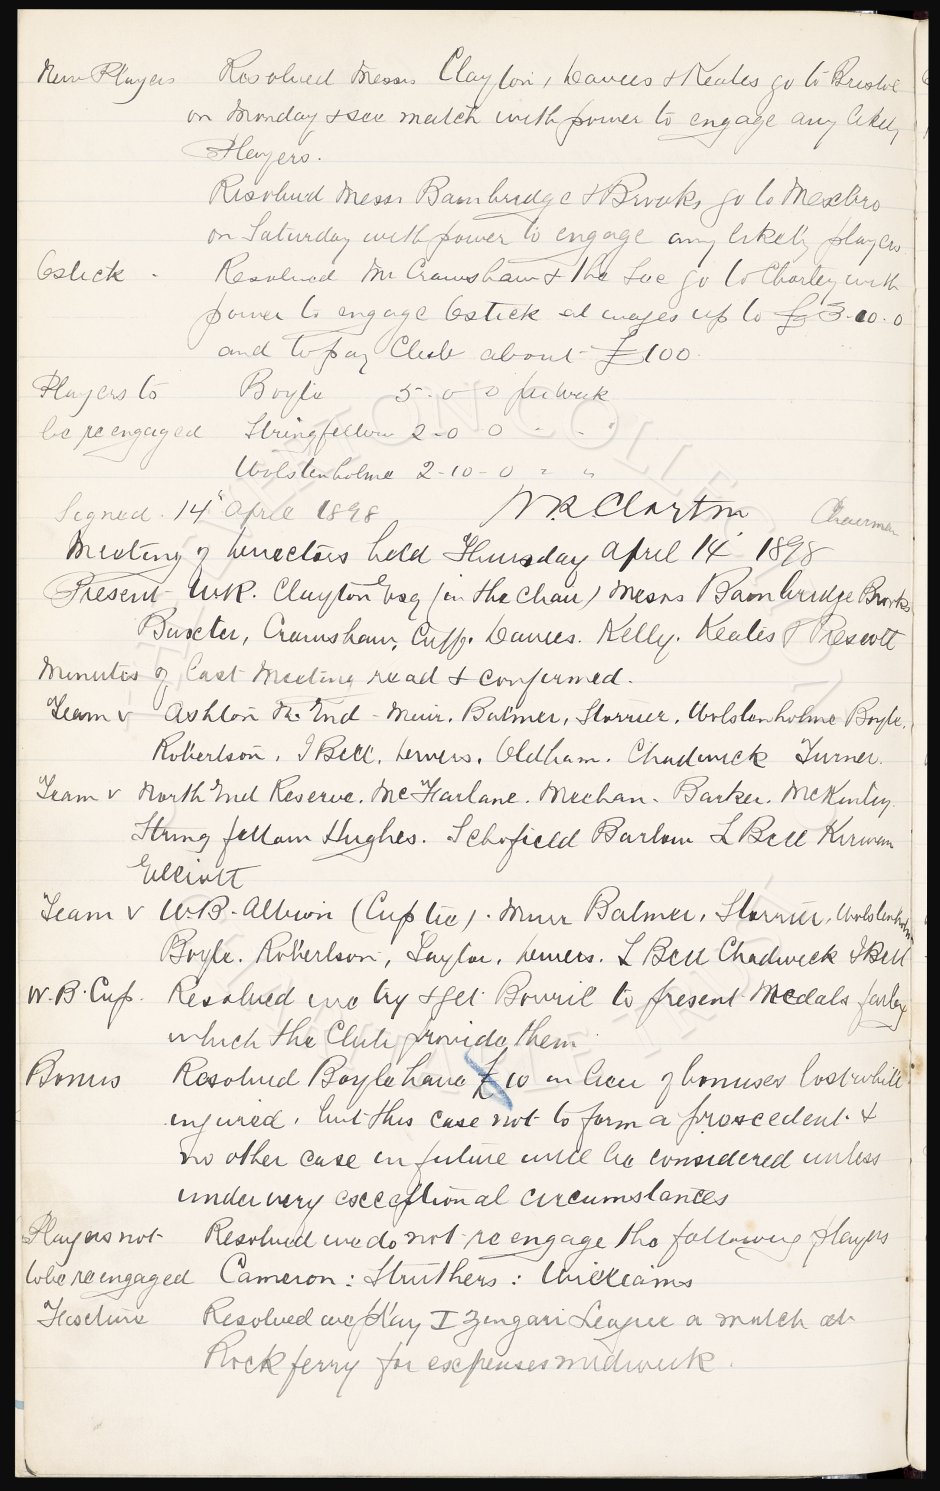 New Players Resolved Messrs Clayton, Davies & Keates go to Bristol
on Monday & see match with power to engage any likely
Players.
Resolved Messrs Bainbridge & Brooks go to Mexbro
on Saturday with power to engage any likely players
Estick - Resolved Mr Crawshaw & the Sec go to Chorley with
power to engage Estick at wages up to £3-10-0
and to pay Club about £100.
Players to Boyle 3-0-0 per week
be re engaged Stringfellow 2-0-0 " "
Wolstenholme 2-10-0 " "
Signed 14th April 1898 WR Clayton Chairman
Meeting of Directors held Thursday April 14th 1898
Present W.R. Clayton Esq (in the Chair) Messrs Bainbridge Brooks
Baxter, Crawshaw, Cuff. Davies. Kelly. Keates & Prescott
Minutes of last Meeting read & confirmed.
Team v Ashton Nr. End - Muir. Balmer, Storrier, Wolstenholme Boyle.
Robertson, J Bell, Divers. Oldham. Chadwick Turner.
Team v North End Reserve. McFarlane. Meehan. Barker. McKinley.
Stringfellow Hughes. Schofield Barlow L Bell Kirwan
Elliott
Team v W.B. Albion (Cup tie). Muir Balmer, Storrier, Wolstenholme
Boyle. Robertson, Taylor, Divers. L Bell Chadwick J Bell
W.B. Cup. Resolved we try & get Bovril to present Medals failing
which the Club provide them
Bonus Resolved Boyle have £10 in lieu of bonuses lost while
injured, but this case not to form a prescedent &
no other case in future will be considered unless
under very exceptional circumstances
Players not Resolved we do not re engage the following players
to be re engaged Cameron: Struthers: Williams
Fixture Resolved we play I Zingari League a match at
Rock ferry for expenses midweek.